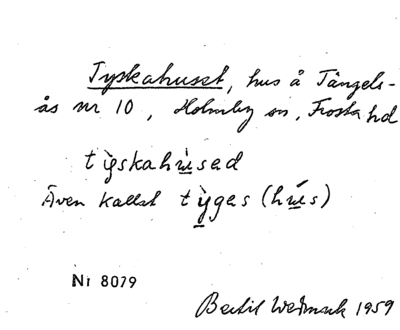 Tyskahuset, hus å Tångels-
ås nr 10, Holmby sn, Frosta hd
tyskahu̱sed
Även kallat ty̱ges (hu̱s)
Nr 8079
Bertil Wedmark 1959